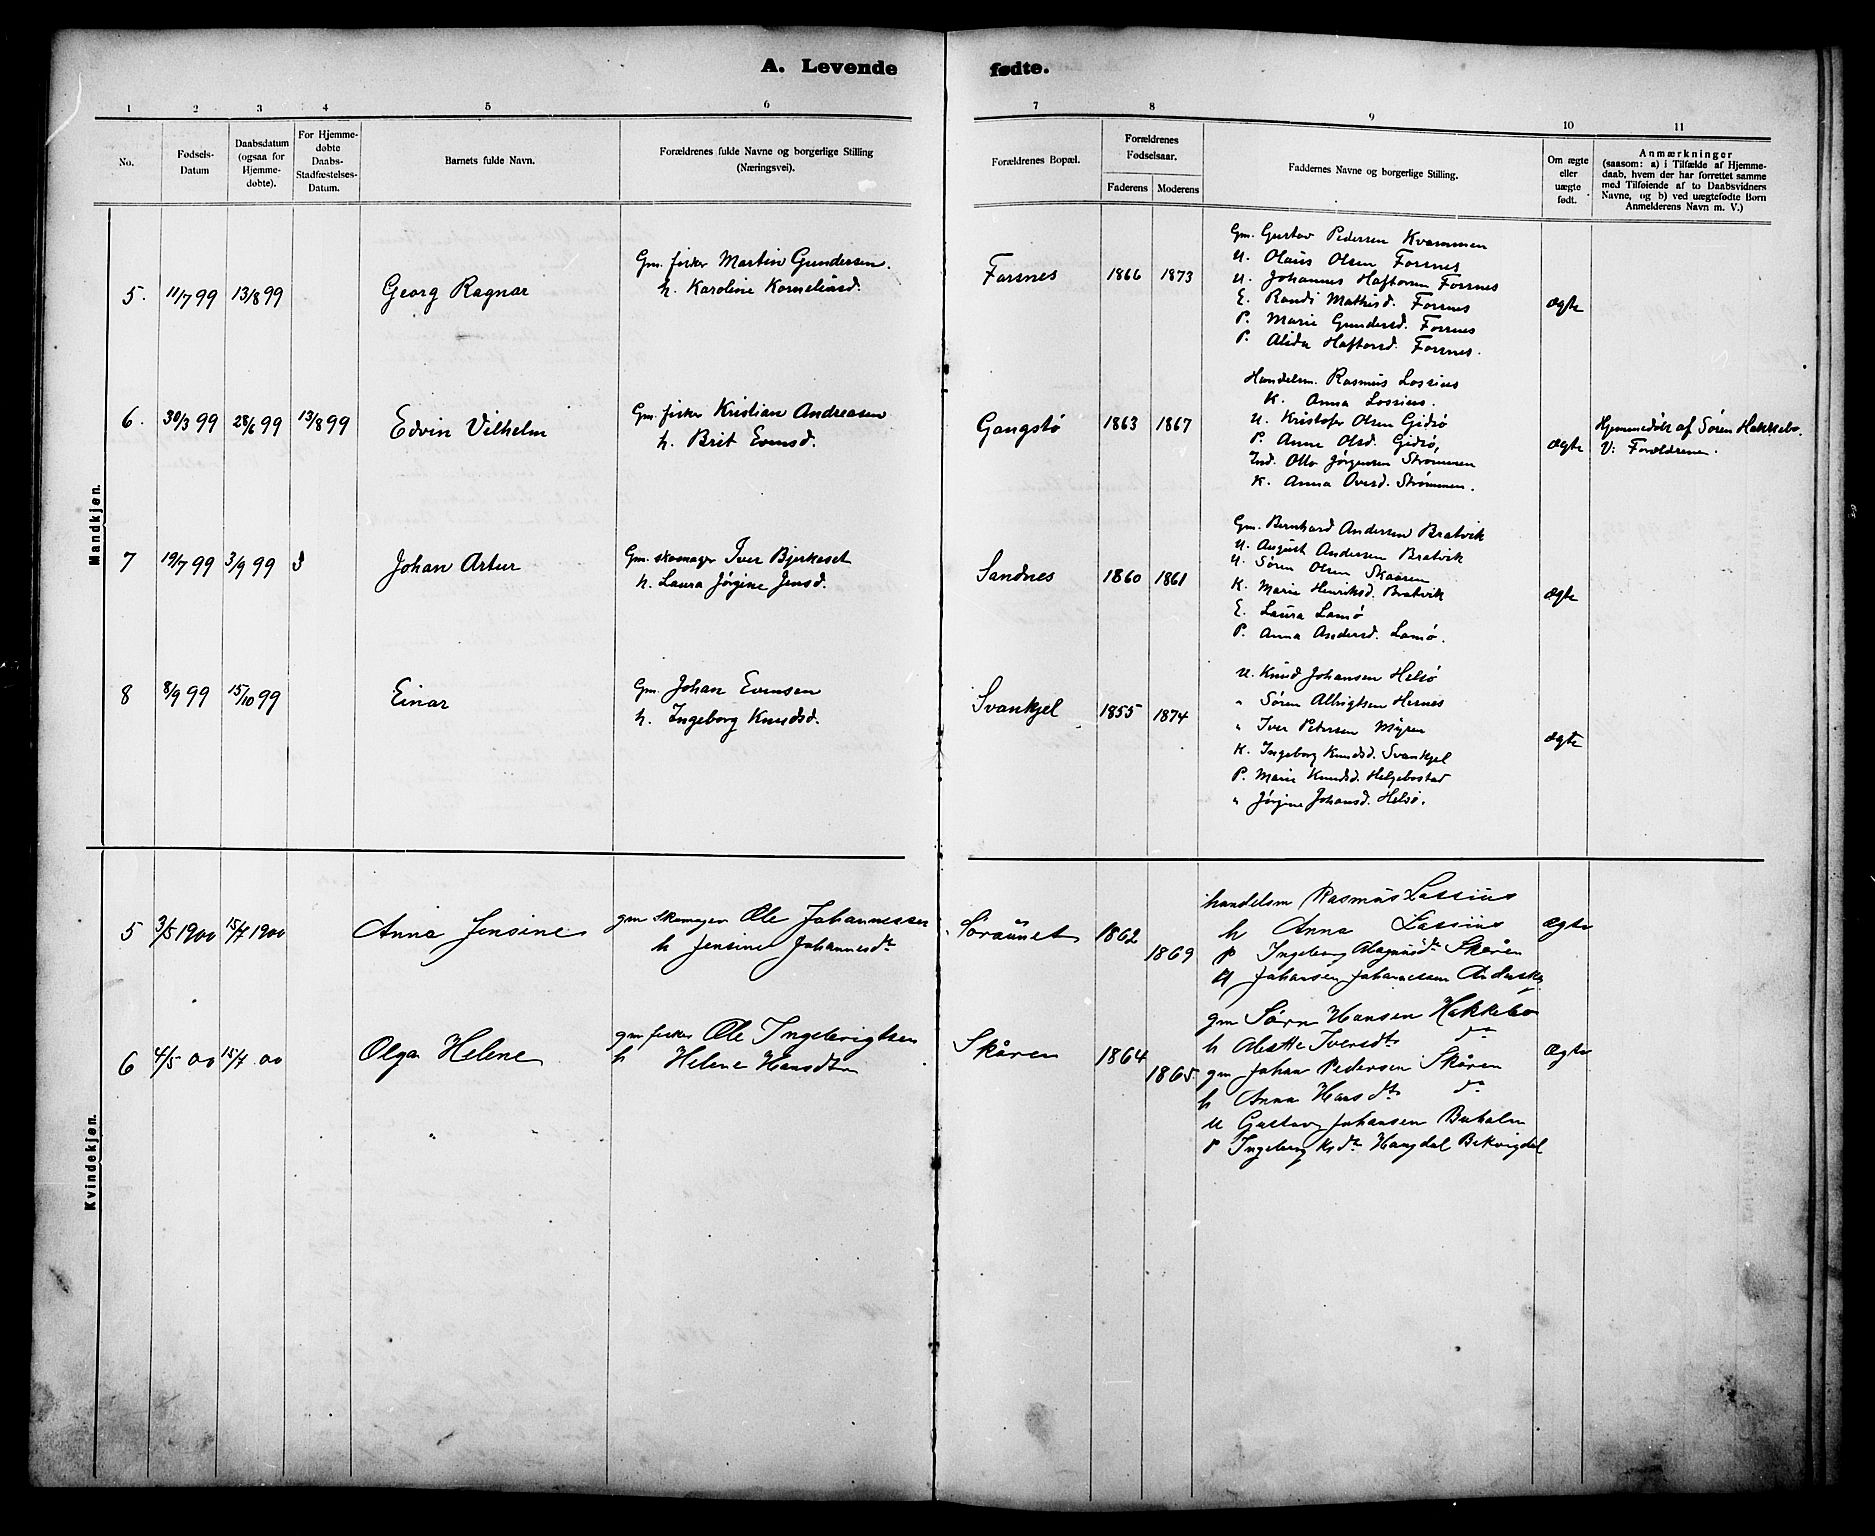 A. Levende fødte.
1 2 3 4 5 6 7 8 9 10 11
No.
Fødsels-
Datum
Daabsdatum
(ogsaa for
Hjemme-
døbte).
For Hjemme-
døbte
Daabs-
Stadfæstelses-
Datum.
Barnets fulde Navn.
Forældrenes fulde Navne og borgerlige Stilling
(Næringsvei).
Forældrenes Bopæl.
Forældrenes
Fødselsaar.
Faderens Moderens
Faddernes Navne og borgerlige Stilling.
Om ægte
eller
uægte
født.
Anmærkninger
(saasom: a) i Tilfælde af Hjemme-
daab, hvem der har forrettet samme
med Tilføiende af to Daabsvidners
Navne, og b) ved uægtefødte Børn
Anmelderens Navn m. V.)
Mandkjøn.
5. 11/7 99 13/8 99 Georg Ragnar
Gm. fisker Martin Gundersen.
h. Karoline Korneliusd.
Forsnes 1866 1873
Gm. Gustav Pedersen Kvammen
U. Olaus Olsen Forsnes
U. Johannes Haftorsen Forsnes
E. Randi Mathisd. Forsnes
P. Marie Gundersd. Forsnes
P. Alida Haftorsd. Forsnes.
ægte
6. 30/3 99 28/6 99 13/8 99 Edvin Vilhelm
Gm. fisker Kristian Andreasen
h. Brit Evensd.
Gangstø 1863 1867
Handelsm. Rasmus Lossius
K. Anna Lossius.
U. Kristofer Olsen Gidsø
P. Anne Olsd. Gidsø,
Ind. Otto Jørgensen Strømmen
K. Anna Oversd. Strømmen.
ægte
Hjemmedøbt af Søren Hakkebo.
V: Forældrene.
7 19/7 99 3/9 99 3 Johan Artur
Gm. skomager Iver Bjerkeset
h. Laura Jørgine Jensd.
Sandnes 1860 1861
Gm. Bernhard Andersen Bratvik
U. August Andersen Bratvik
U. Søren Olsen Skaaren
K. Marie Henriksd. Bratvik
E. Laura Lamø
P. Anna Andersd. Lamø.
ægte
8 8/9 99 15/10 99 Einar
Gm. Johan Evensen
h. Ingeborg Knudsd.
Svankjel 1855 1874
U. Knud Johansen Helsø
" Søren Albrigtsen Hernes
" Iver Petersen Myren
K. Ingeborg Knudsd. Svankjel
P. Marie Knudsd. Helgebostad
" Jørgine Johansd. Helsø.
ægte
Kvindekjøn.
5 3/5 1900 15/7 1900 Anna Jensine
gm skomager Ole Johannessen
h Jensine Johannesdt
Søraunet 1862 1869
handelsm Rasmus Lossius
h Anna Lossius
p Ingeborg Magnusdt Skåren
U Johansen Johannessen
ægte
6 4/5 00 15/7 00 Olga Helene
gm fisker Ole Ingebrigtsen
h Helene Hansdtr
Skåren 1864 1865
gm Sørn Hansen Hakkebo
h Alette Iversdtr do
gm Johan Pedersen Skåren
h Anna Hansdtr do
U Gustav Johansen Buholm
P Ingeborg Haugdal
ægte